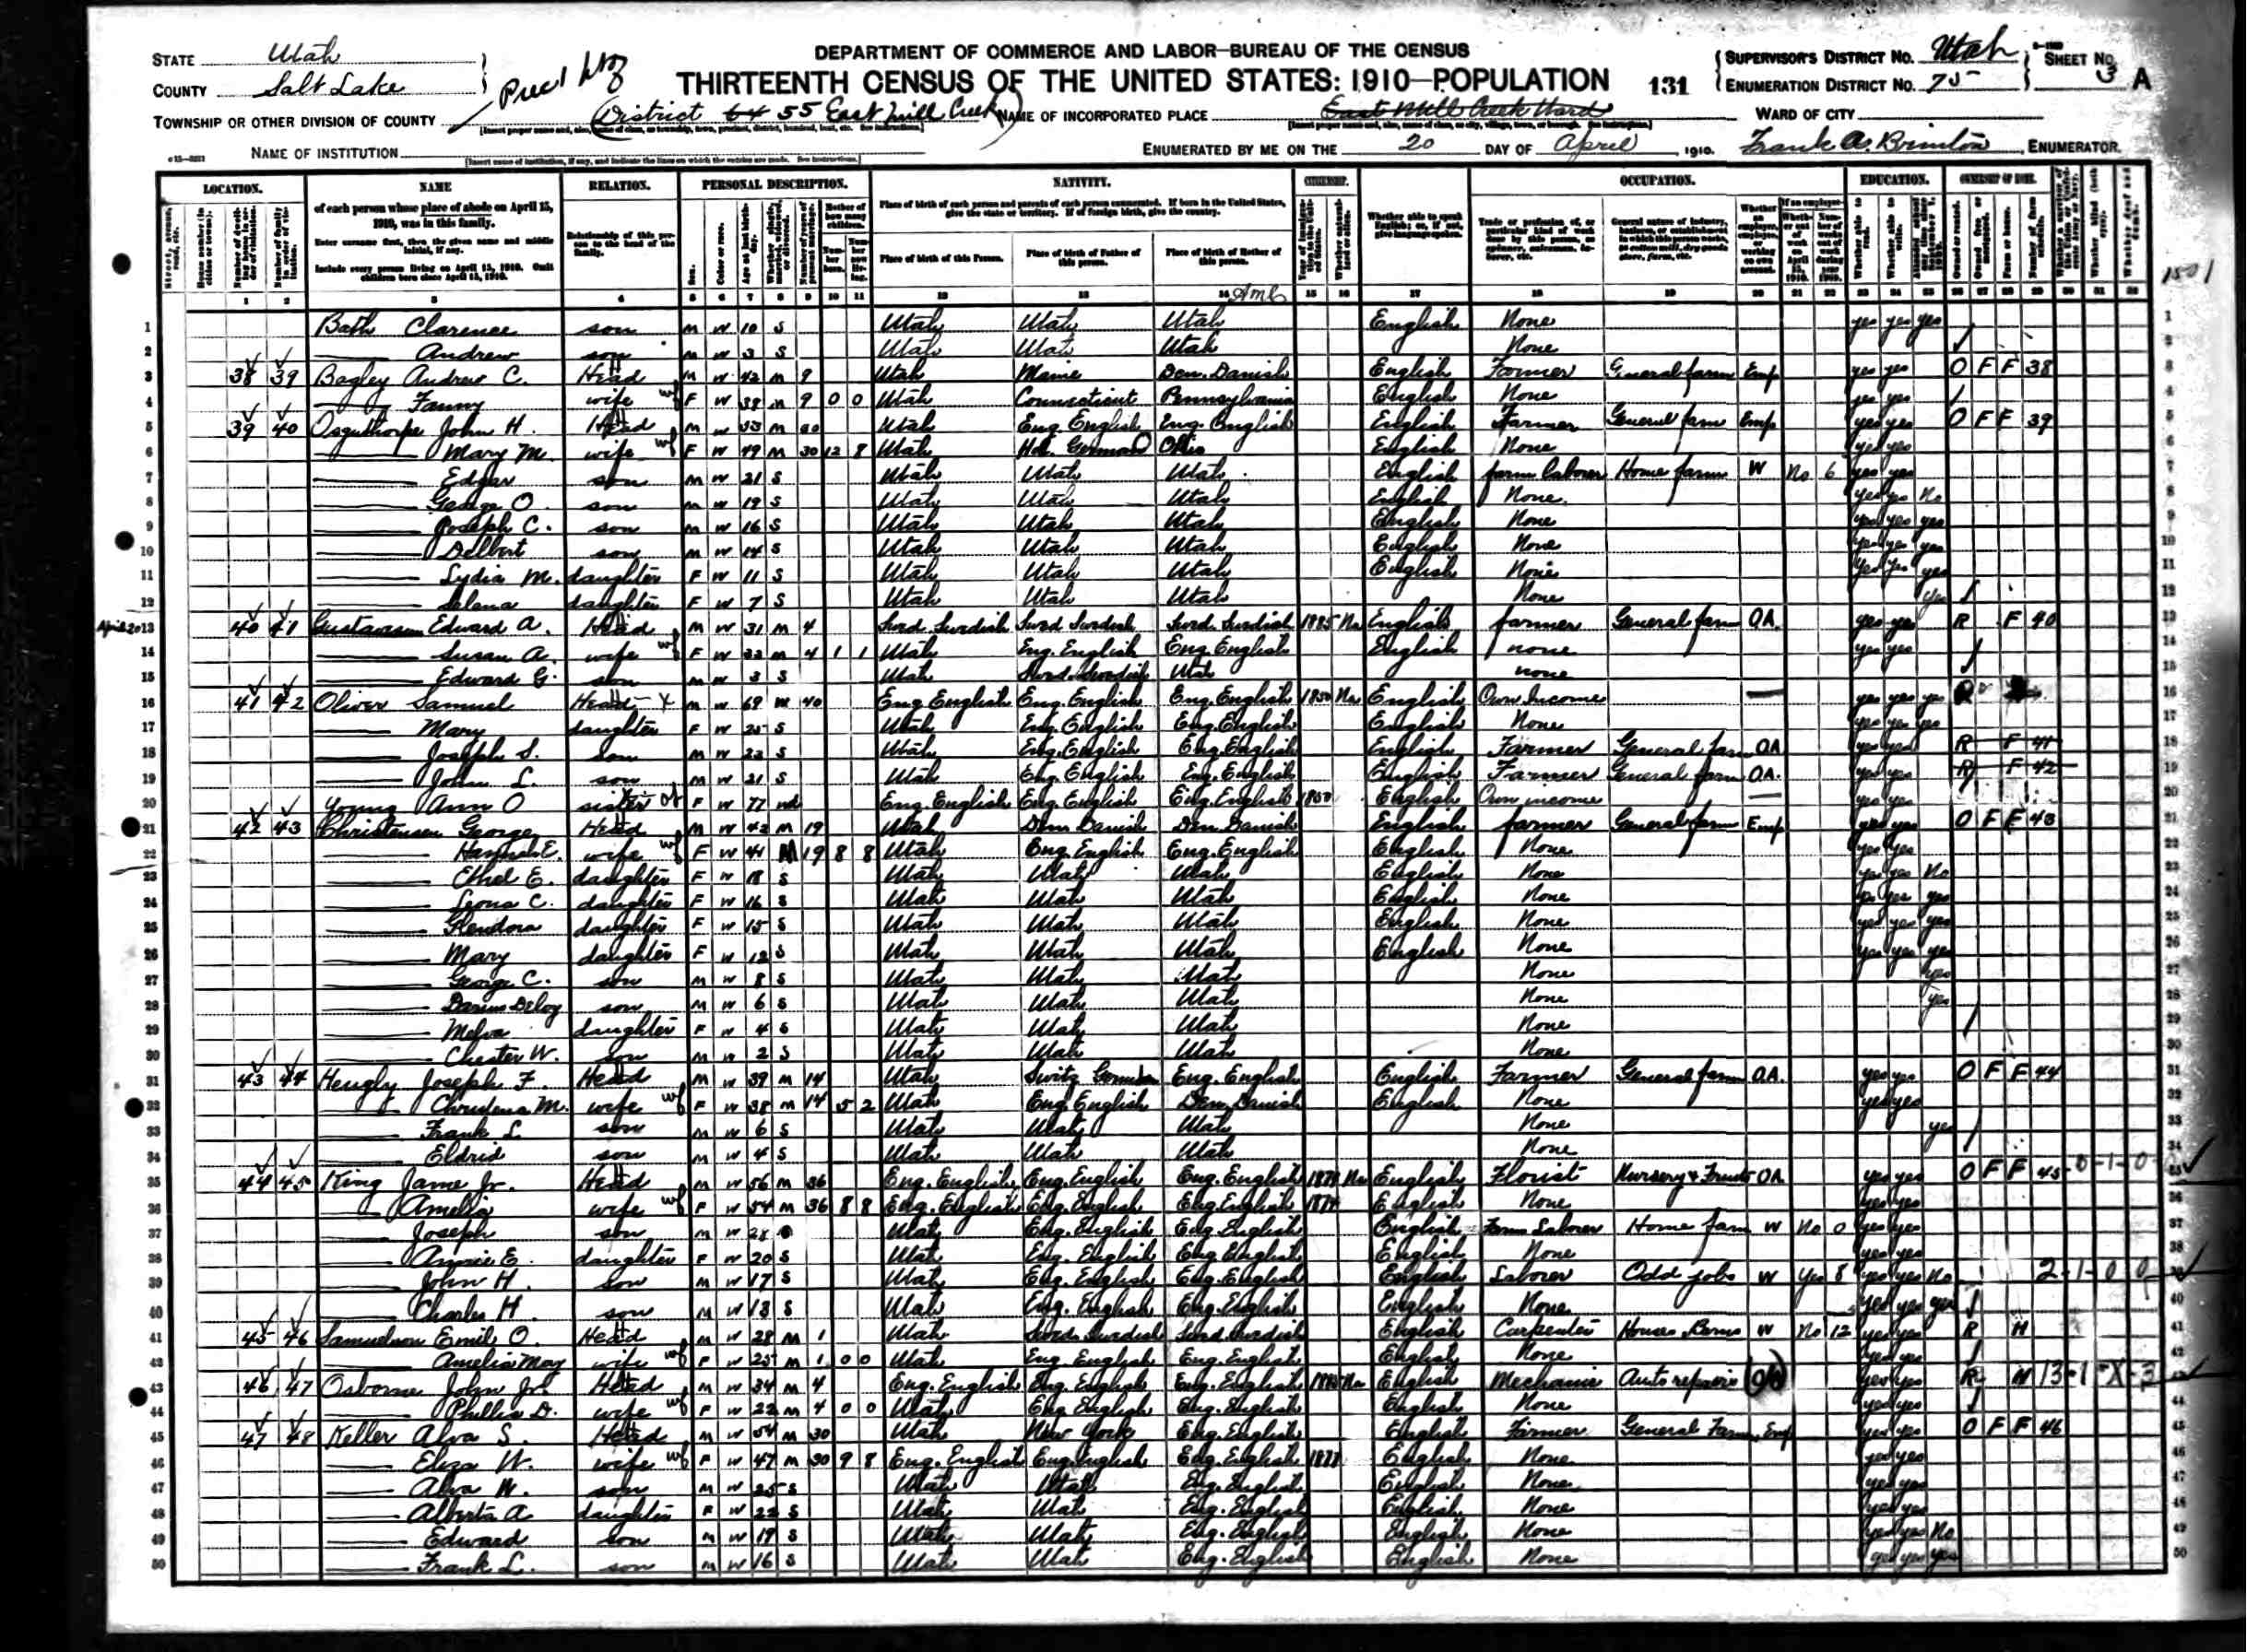 DEPARTMENT OF COMMERCE AND LABOR—BUREAU OF THE CENSUS
THIRTEENTH CENSUS OF THE UNITED STATES: 1910—POPULATION
131
STATE Utah
COUNTY Salt Lake
TOWNSHIP OR OTHER DIVISION OF COUNTY District 55 East Mill Creek
NAME OF INCORPORATED PLACE East Mill Creek Ward
NAME OF INSTITUTION
SUPERVISOR'S DISTRICT NO. Utah
ENUMERATION DISTRICT NO. 75
SHEET NO. 3 A
WARD OF CITY
ENUMERATED BY ME ON THE 20 DAY OF April, 1910. Frank A. Brinton, ENUMERATOR.
LOCATION. NAME RELATION. PERSONAL DESCRIPTION. NATIVITY. CITIZENSHIP. OCCUPATION. EDUCATION. OWNERSHIP OF HOME.
of each person whose place of abode on April 15, 1910, was in this family.
Enter surname first, then the given name and middle initial, if any.
Include every person living on April 15, 1910. Omit children born since April 15, 1910.
Relationship of this person to the head of the family.
Place of birth of each person and parents of each person enumerated. If born in the United States, give the state or territory. If of foreign birth, give the country.
Place of birth of this Person. Place of birth of Father of this person. Place of birth of Mother of this person.
1 Bath Clarence son M W 10 S Utah Utah Utah English None yes yes yes
2 Andrew son M W 3 S Utah Utah Utah None
3 38 39 Bagley Andrew C. Head M W 42 M 9 Utah Maine Den. Danish English Farmer General farm Emp yes yes O F F 38
4 Fanny wife F W 38 M 9 0 0 Utah Connecticut Pennsylvania English None yes yes
5 39 40 Osguthorpe John H. Head M W 53 M 30 Utah Eng. English Eng. English English Farmer General farm Emp yes yes O F F 39
6 Mary M. wife F W 49 M 30 12 8 Utah German Ohio English None yes yes
7 Edgar son M W 21 S Utah Utah Utah English farm laborer Home farm W No 6 yes yes
8 George O. son M W 19 S Utah Utah Utah English None yes yes No
9 Joseph C. son M W 16 S Utah Utah Utah English None yes yes yes
10 Delbert son M W 14 S Utah Utah Utah English None yes yes yes
11 Lydia M. daughter F W 11 S Utah Utah Utah English None yes yes yes
12 Selena daughter F W 7 S Utah Utah Utah None yes
13 40 41 Gustaveson Edward A. Head M W 31 M 4 Swed. Swedish Swed Swedish Swed. Swedish 1885 Na English farmer General farm OA. yes yes R F 40
14 Susan A. wife F W 33 M 4 1 1 Utah Eng. English Eng. English English none yes yes
15 Edward G. son M W 3 S Utah Swed. Swedish Utah none
16 41 42 Oliver Samuel Head M W 69 40 Eng English Eng. English Eng. English 1850 Na English Own Income yes yes yes
17 Mary daughter F W 25 S Utah Eng. English Eng. English English None yes yes yes
18 Joseph S. Son M W 23 S Utah Eng. English Eng. English English Farmer General farm OA yes yes R F 41
19 John L. son M W 21 S Utah Eng. English Eng. English English Farmer General farm O.A. yes yes R F 42
20 Young Ann O sister F W 77 wd Eng. English Eng. English Eng. English 1850 English Own income yes yes
21 42 43 Christensen George Head M W 42 M 19 Utah Den Danish Den Danish English farmer General farm Emp yes yes O F F 43
22 Hannah E. wife F W 41 M 19 8 8 Utah Eng. English Eng. English English None yes yes
23 Ethel E. daughter F W 18 S Utah Utah Utah English None yes yes No
24 Leona C. daughter F W 16 S Utah Utah Utah English None yes yes yes
25 Glendora daughter F W 15 S Utah Utah Utah English None yes yes yes
26 Mary daughter F W 12 S Utah Utah Utah English None yes yes yes
27 George C. son M W 8 S Utah Utah Utah None yes
28 Darius Deloy son M W 6 S Utah Utah Utah None yes
29 Melva daughter F W 4 S Utah Utah Utah None
30 Chester W. son M W 2 S Utah Utah Utah None
31 43 44 Heugly Joseph F. Head M W 39 M 14 Utah Switz German Eng. English English Farmer General farm O.A. yes yes O F F 44
32 Christena M. wife F W 38 M 14 5 2 Utah Eng English Den Danish English None yes yes
33 Frank L. son M W 6 S Utah Utah Utah None yes
34 Eldrid son M W 4 S Utah Utah Utah None
35 44 45 King Jame Jr. Head M W 56 M 36 Eng. English Eng English Eng. English Na English Florist Nursery & Fruits OA yes yes O F F 45
36 Amelia wife F W 54 M 36 8 8 Eng. English Eng. English Eng. English 1874 English None yes yes
37 Joseph son M W 28 Utah Eng. English Eng. English English Farm Laborer Home farm W No 0 yes yes
38 Annie E. daughter F W 20 S Utah Eng. English Eng. English English None yes yes
39 John H. Son M W 17 S Utah Eng. English Eng. English English Laborer Odd jobs W Yes 8 yes yes No 2-1-0 0
40 Charles H. son M W 13 S Utah Eng. English Eng. English English None yes yes yes
41 45 46 Samuelson Emil O. Head M W 28 M 1 Utah Swed. Swedish Swed. Swedish English Carpenter Houses, Barns W No 12 yes yes R H
42 Amelia May wife F W 25 M 1 0 0 Utah Eng. English Eng. English English None yes yes
43 46 47 Osborne John Jr. Head M W 34 M 4 Eng. English Eng. English Eng. English Na English Mechanic Auto repairs yes yes R H 13-1-X-3
44 Phillis D. wife F W 22 M 4 0 0 Utah Eng English Eng. English English None yes yes
45 47 48 Keller Alva S. Head M W 54 M 30 Utah New York Eng. English English Farmer General Farm Emp yes yes O F F 46
46 Eliza W. wife F W 47 M 30 9 8 Eng. English Eng. English Eng. English English None yes yes
47 Alva W. son M W 25 S Utah Utah Eng. English English None yes yes
48 Alberta A daughter F W 22 S Utah Utah Eng. English English None yes yes
49 Edward Son M W 19 S Utah Utah Eng. English English None yes yes No
50 Frank L. son M W 16 S Utah Utah Eng. English English None yes yes yes